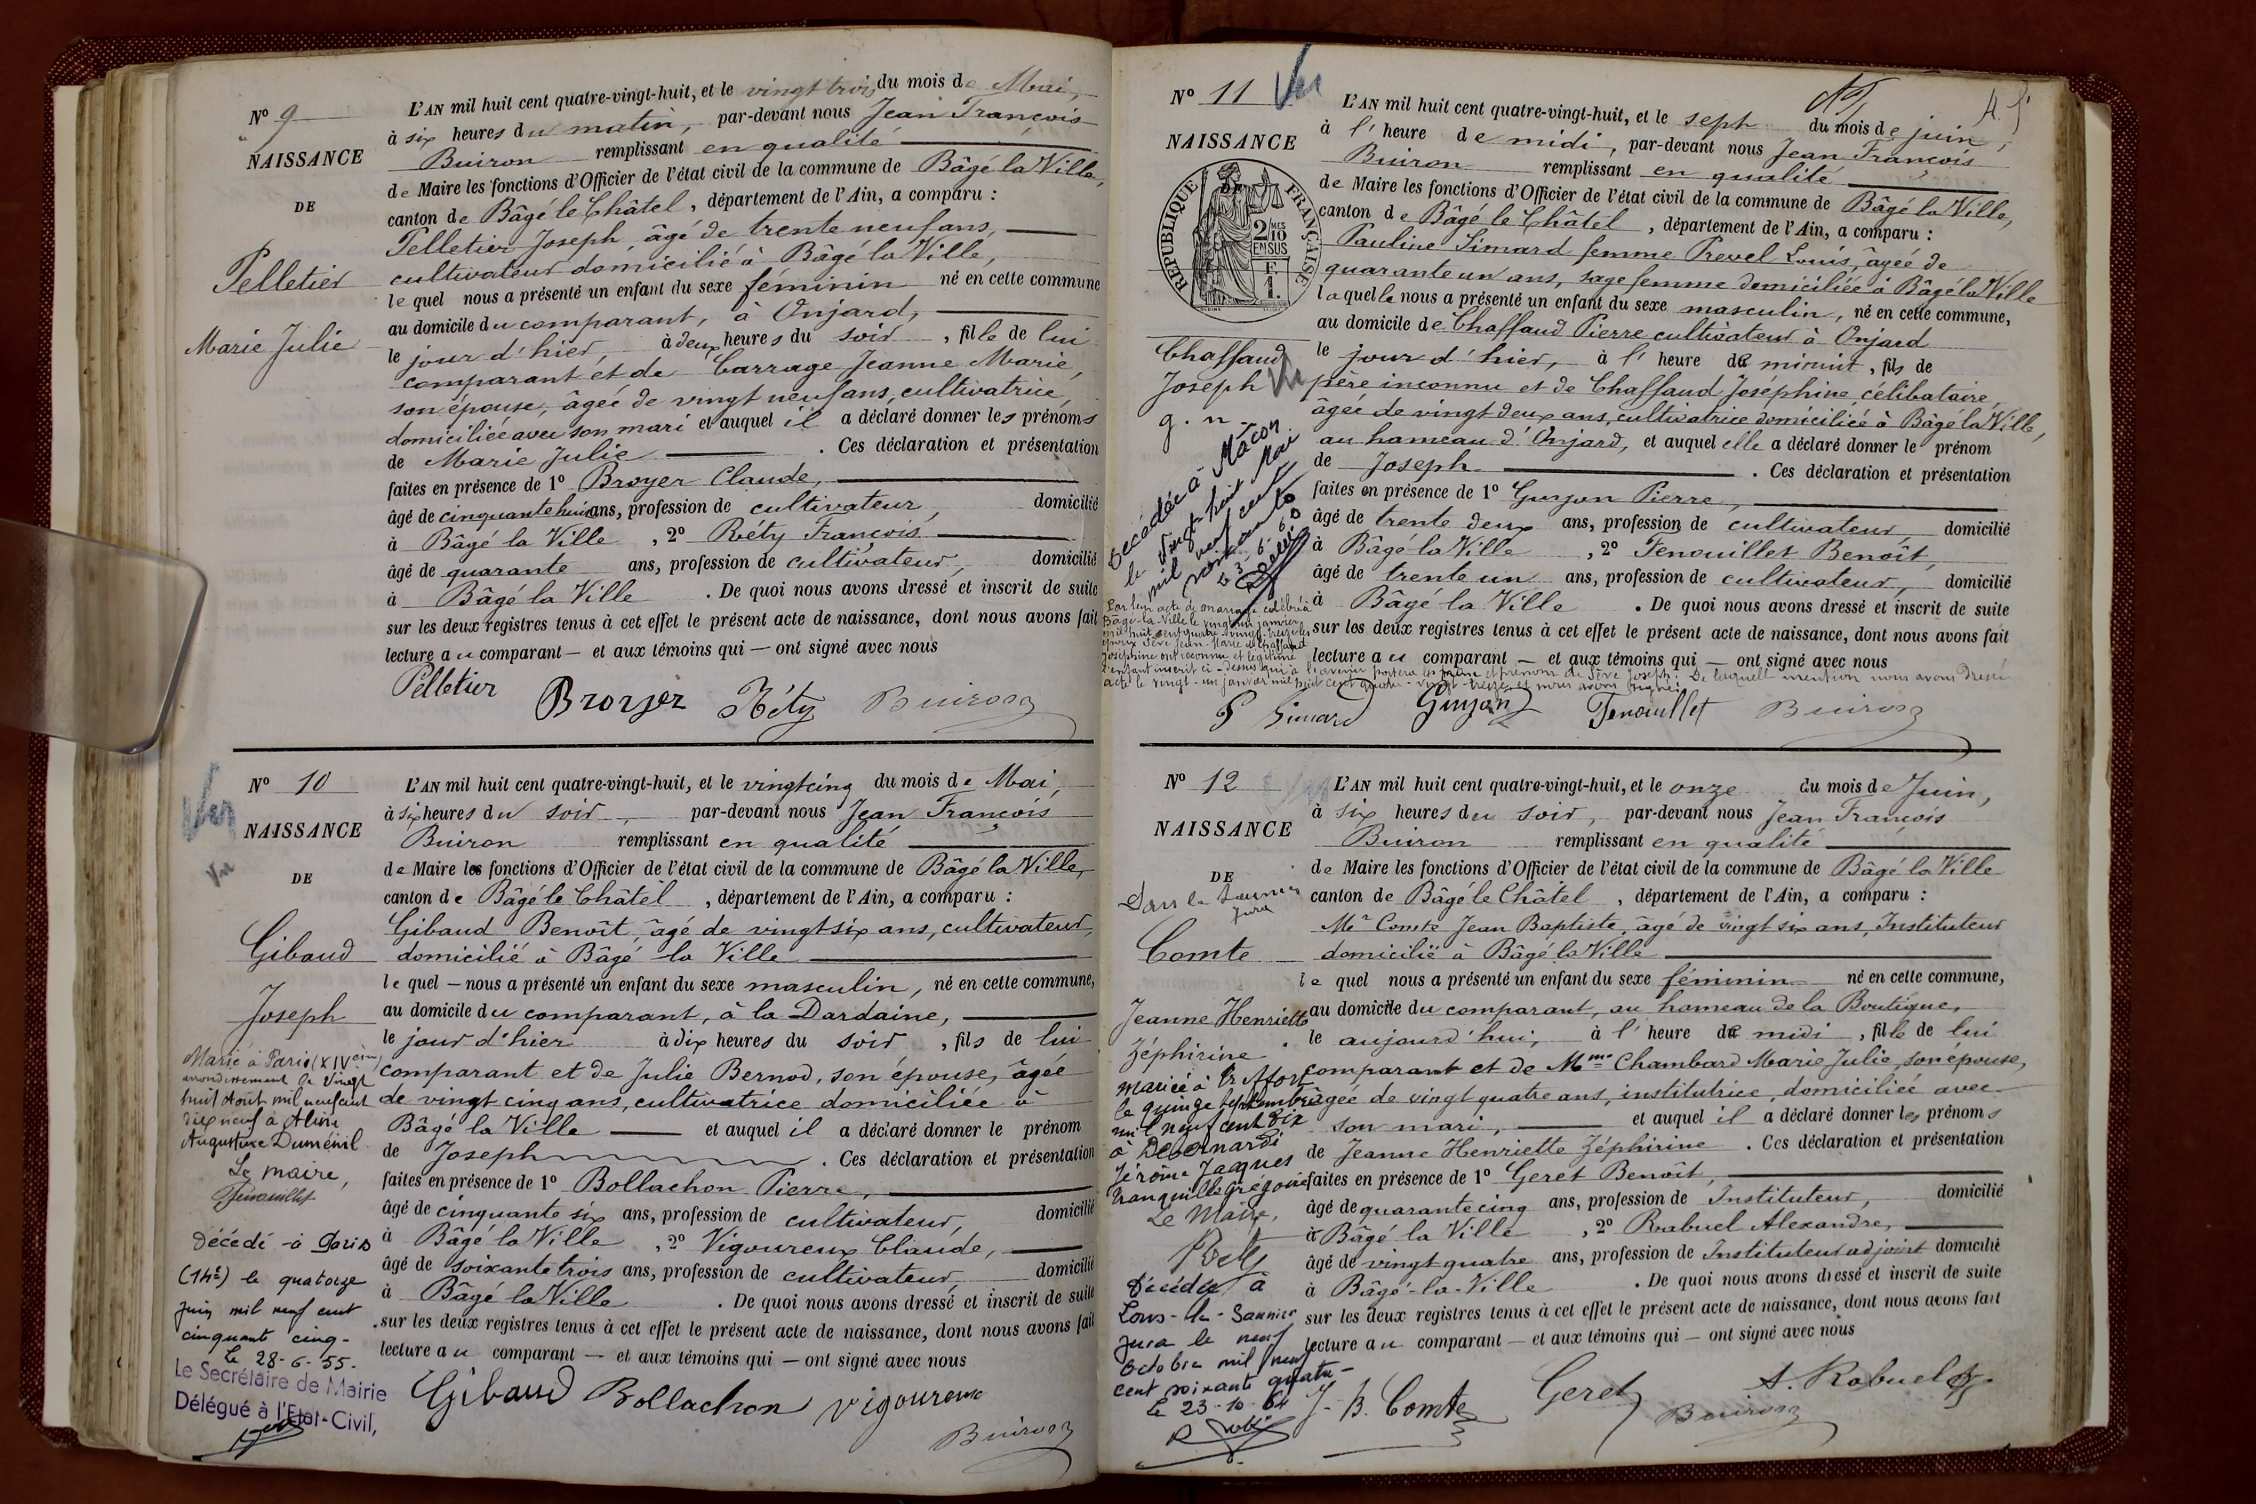 Nº 9
NAISSANCE
DE
Pelletier
Marie Julie
L'AN mil huit cent quatre-vingt-huit, et le vingt trois du mois de Mai,
à six heures du matin, par-devant nous Jean François
Buiron remplissant en qualité
de Maire les fonctions d'Officier de l'état civil de la commune de Bâgé la Ville,
canton de Bâgé le Châtel, département de l'Ain, a comparu :
Pelletier Joseph, âgé de trente neuf ans,
cultivateur domicilié à Bâgé la Ville,
lequel nous a présenté un enfant du sexe féminin né en cette commune
au domicile du comparant, à Onjard,
le jour d'hier, à deux heures du soir, fille de lui
comparant et de Carrage Jeanne Marie,
son épouse, âgée de vingt neuf ans, cultivatrice,
domiciliée avec son mari et auquel il a déclaré donner les prénoms
de Marie Julie. Ces déclaration et présentation
faites en présence de 1º Broyer Claude,
âgé de cinquante huit ans, profession de cultivateur, domicilié
à Bâgé la Ville, 2º Réty François
âgé de quarante ans, profession de cultivateur, domicilié
à Bâgé la Ville. De quoi nous avons dressé et inscrit de suite
sur les deux registres tenus à cet effet le présent acte de naissance, dont nous avons fait
lecture au comparant — et aux témoins qui — ont signé avec nous
Pelletier Broyer Réty Buiron
Nº 10
NAISSANCE
DE
Gibaud
Joseph
Marié à Paris (XIVème)
arrondissement le vingt
huit Août mil neuf cent
dix neuf à Aline
Augustine Duménil
Le maire,
Fenouillet
Décédé à Paris
(14e) le quatorze
juin mil neuf cent
cinquante cinq -
Le 28-6-55.
Le Secrétaire de Mairie
Délégué à l'Etat-Civil,
L'AN mil huit cent quatre-vingt-huit, et le vingt cinq du mois de Mai,
à six heures du soir, par-devant nous Jean François
Buiron remplissant en qualité
de Maire les fonctions d'Officier de l'état civil de la commune de Bâgé la Ville,
canton de Bâgé le Châtel, département de l'Ain, a comparu :
Gibaud Benoît, âgé de vingt six ans, cultivateur,
domicilié à Bâgé la Ville
lequel — nous a présenté un enfant du sexe masculin, né en cette commune,
au domicile du comparant, à la Dardaine,
le jour d'hier à dix heures du soir, fils de lui
comparant et de Julie Bernod, son épouse, âgée
de vingt cinq ans, cultivatrice domiciliée à
Bâgé la Ville et auquel il a déclaré donner le prénom
de Joseph. Ces déclaration et présentation
faites en présence de 1º Bollachon Pierre,
âgé de cinquante six ans, profession de cultivateur, domicilié
à Bâgé la Ville, 2º Vigoureux Claude,
âgé de soixante trois ans, profession de cultivateur, domicilié
à Bâgé la Ville. De quoi nous avons dressé et inscrit de suite
sur les deux registres tenus à cet effet le présent acte de naissance, dont nous avons fait
lecture au comparant — et aux témoins qui — ont signé avec nous
Gibaud Bollachon Vigoureux
Buiron
Nº 11 Vu
NAISSANCE
RÉPUBLIQUE FRANÇAISE
2/10 MES EN SUS
F. 1.
Chaffaud
Joseph
g. n.
Décédée à Mâcon
le vingt huit Mai
mil neuf cent
soixante
Le 3.6.60
Par leur acte de mariage célébré à
Bâgé-la-Ville le vingt un janvier
mil huit cent quatre-vingt-treize les
époux Sève Jean-Marie et Chaffaud
Joséphine ont reconnu et légitimé
l'enfant inscrit ci-dessus qui à l'avenir portera les nom et prénom de Sève Joseph. De laquelle mention nous avons dressé
acte le vingt-un janvier mil huit cent quatre-vingt-treize et nous avons signé.
L'AN mil huit cent quatre-vingt-huit, et le sept du mois de juin,
à l'heure de midi, par-devant nous Jean François
Buiron remplissant en qualité
de Maire les fonctions d'Officier de l'état civil de la commune de Bâgé la Ville,
canton de Bâgé le Châtel, département de l'Ain, a comparu :
Pauline Simard femme Prevel Louis, âgée de
quarante un ans, sage femme domiciliée à Bâgé la Ville
laquelle nous a présenté un enfant du sexe masculin, né en cette commune,
au domicile de Chaffaud Pierre cultivateur à Onjard
le jour d'hier, à l'heure de minuit, fils de
père inconnu et de Chaffaud Joséphine, célibataire,
âgée de vingt deux ans, cultivatrice domiciliée à Bâgé la Ville,
au hameau d'Onjard, et auquel elle a déclaré donner le prénom
de Joseph. Ces déclaration et présentation
faites en présence de 1º Guyon Pierre,
âgé de trente deux ans, profession de cultivateur, domicilié
à Bâgé la Ville, 2º Fenouillet Benoît,
âgé de trente un ans, profession de cultivateur, domicilié
à Bâgé la Ville. De quoi nous avons dressé et inscrit de suite
sur les deux registres tenus à cet effet le présent acte de naissance, dont nous avons fait
lecture au comparant — et aux témoins qui — ont signé avec nous
P Simard Guyon Fenouillet Buiron
Nº 12
NAISSANCE
DE
Comte
Jeanne Henriette
Zéphirine
Mariée à Treffort
le quinze septembre
mil neuf cent dix
à Debernardi
Jérôme Jacques
Tranquille Grégoire
Le Maire,
Réty
Décédée à
Lons-le-Saunier
Jura le neuf
Octobre mil neuf
cent soixante quatre -
Le 23-10-64
L'AN mil huit cent quatre-vingt-huit, et le onze du mois de Juin,
à six heures du soir, par-devant nous Jean François
Buiron remplissant en qualité
de Maire les fonctions d'Officier de l'état civil de la commune de Bâgé la Ville
canton de Bâgé le Châtel, département de l'Ain, a comparu :
Mr Comte Jean Baptiste, âgé de vingt six ans, Instituteur
domicilié à Bâgé la Ville
lequel nous a présenté un enfant du sexe féminin né en cette commune,
au domicile du comparant, au hameau de la Boutique,
le aujourd'hui, à l'heure de midi, fille de lui
comparant et de Mme Chambard Marie Julie, son épouse,
âgée de vingt quatre ans, institutrice, domiciliée avec
son mari, et auquel il a déclaré donner les prénoms
de Jeanne Henriette Zéphirine. Ces déclaration et présentation
faites en présence de 1º Geret Benoît,
âgé de quarante cinq ans, profession de Instituteur, domicilié
à Bâgé la Ville, 2º Rabuel Alexandre,
âgé de vingt quatre ans, profession de Instituteur adjoint domicilié
à Bâgé-la-Ville. De quoi nous avons dressé et inscrit de suite
sur les deux registres tenus à cet effet le présent acte de naissance, dont nous avons fait
lecture au comparant — et aux témoins qui — ont signé avec nous
J. B. Comte Geret A. Rabuel
Buiron